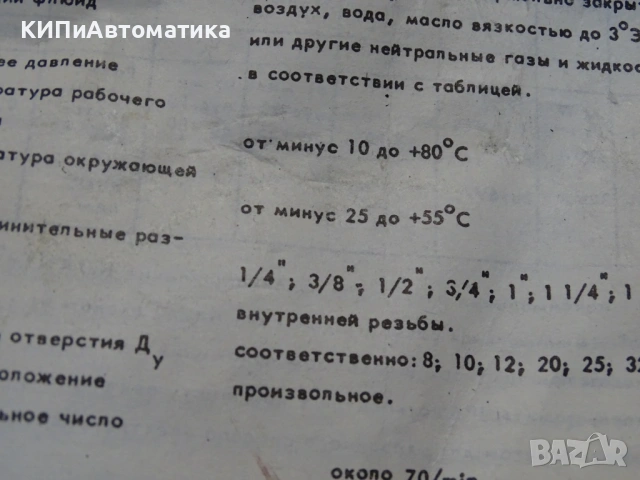 КИПиАвтоматика
флюид
закры
воздух, вода, масло вязкостью до 3°Э
или другие нейтральные газы и жидкос
в соответствии с таблицей.
давление
ратура рабочего
атура окружающей
от минус 10 до +80°С
от минус 25 до +55°С
инительные раз-
1/4"; 3/8"; 1/2"; 3/4"; 1"; 1 1/4"; 1
внутренней резьбы.
отверстия Ду
соответственно: 8; 10; 12; 20; 25; 32
оложение
произвольное.
ьное число
около 70/min
BAZAR